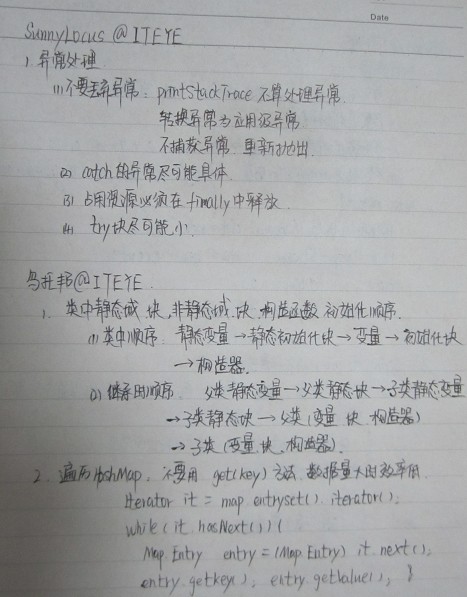 Date
SunnyLocus @ITEYE
1. 异常处理
(1) 不要丢弃异常：printStackTrace 不算处理异常.
转换异常为应用级异常.
不捕获异常 重新抛出.
(2) catch的异常尽可能具体.
(3) 占用资源必须在 finally 中释放.
(4) try块尽可能小.
乌托邦@ITEYE.
1. 类中静态域、块，非静态域、块，构造函数 初始化顺序.
(1) 类中顺序：静态变量→静态初始化块→变量→初始化块
→构造器.
(2) 继承时顺序 父类静态变量→父类静态块→子类静态变量
→子类静态块→父类(变量 块 构造器)
→子类(变量 块 构造器).
2. 遍历HashMap, 不要用 get(key) 方法 数据量大时效率低.
Iterator it = map.entryset().iterator();
while (it.hasNext()) {
Map.Entry entry = (Map.Entry) it.next();
entry.getkey(); entry.getValue(); }